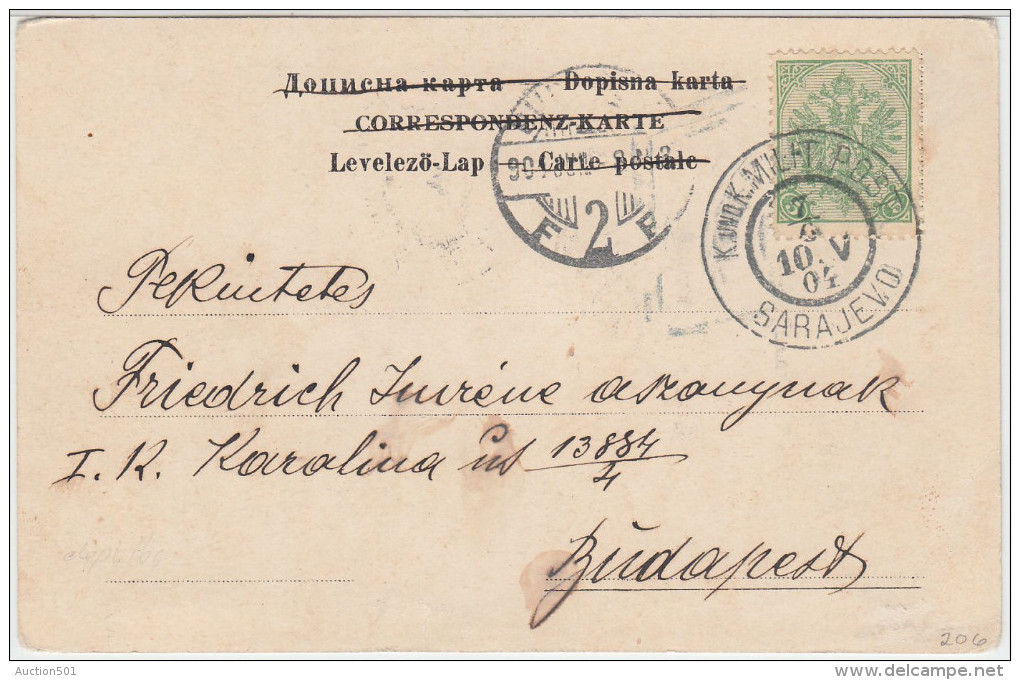 Дописна карта Dopisna karta
CORRESPONDENZ-KARTE
Levelezö-Lap Carte postale
K. UND K. MILIT. POST
10 V
04
SARAJEVO
2
5
Tekintetes
Friedrich Imréne aszonynak
I. K. Karolina út 13884/4
Budapest
206
Auction501
delcampe.net